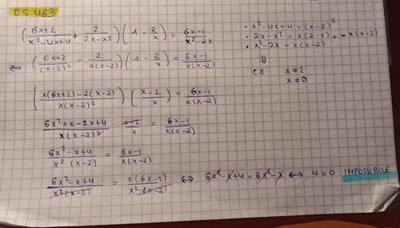 ES 463
(6x+2 / x²-4x+4 + 2 / 2x-x²) (1 - 2/x) = 6x-1 / x²-2x
⇔ (6x+2 / (x-2)² - 2 / x(x-2)) (1 - 2/x) = 6x-1 / x(x-2)
(x(6x+2)-2(x-2) / x(x-2)²) (x-2 / x) = 6x-1 / x(x-2)
6x²+x-2x+4 / x(x-2)² x-2 / x = 6x-1 / x(x-2)
6x²-x+4 / x²(x-2) = 6x-1 / x(x-2)
6x²-x+4 / x²(x-2) = x(6x-1) / x²(x-2) ⇔ 6x²-x+4 = 6x²-x ⇔ 4=0 IMPOSSIBILE
• x²-4x+4 = (x-2)²
• 2x-x² = x(2-x) = -x(x-2)
• x²-2x = x(x-2)
⇓
C.E. x≠2
x≠0